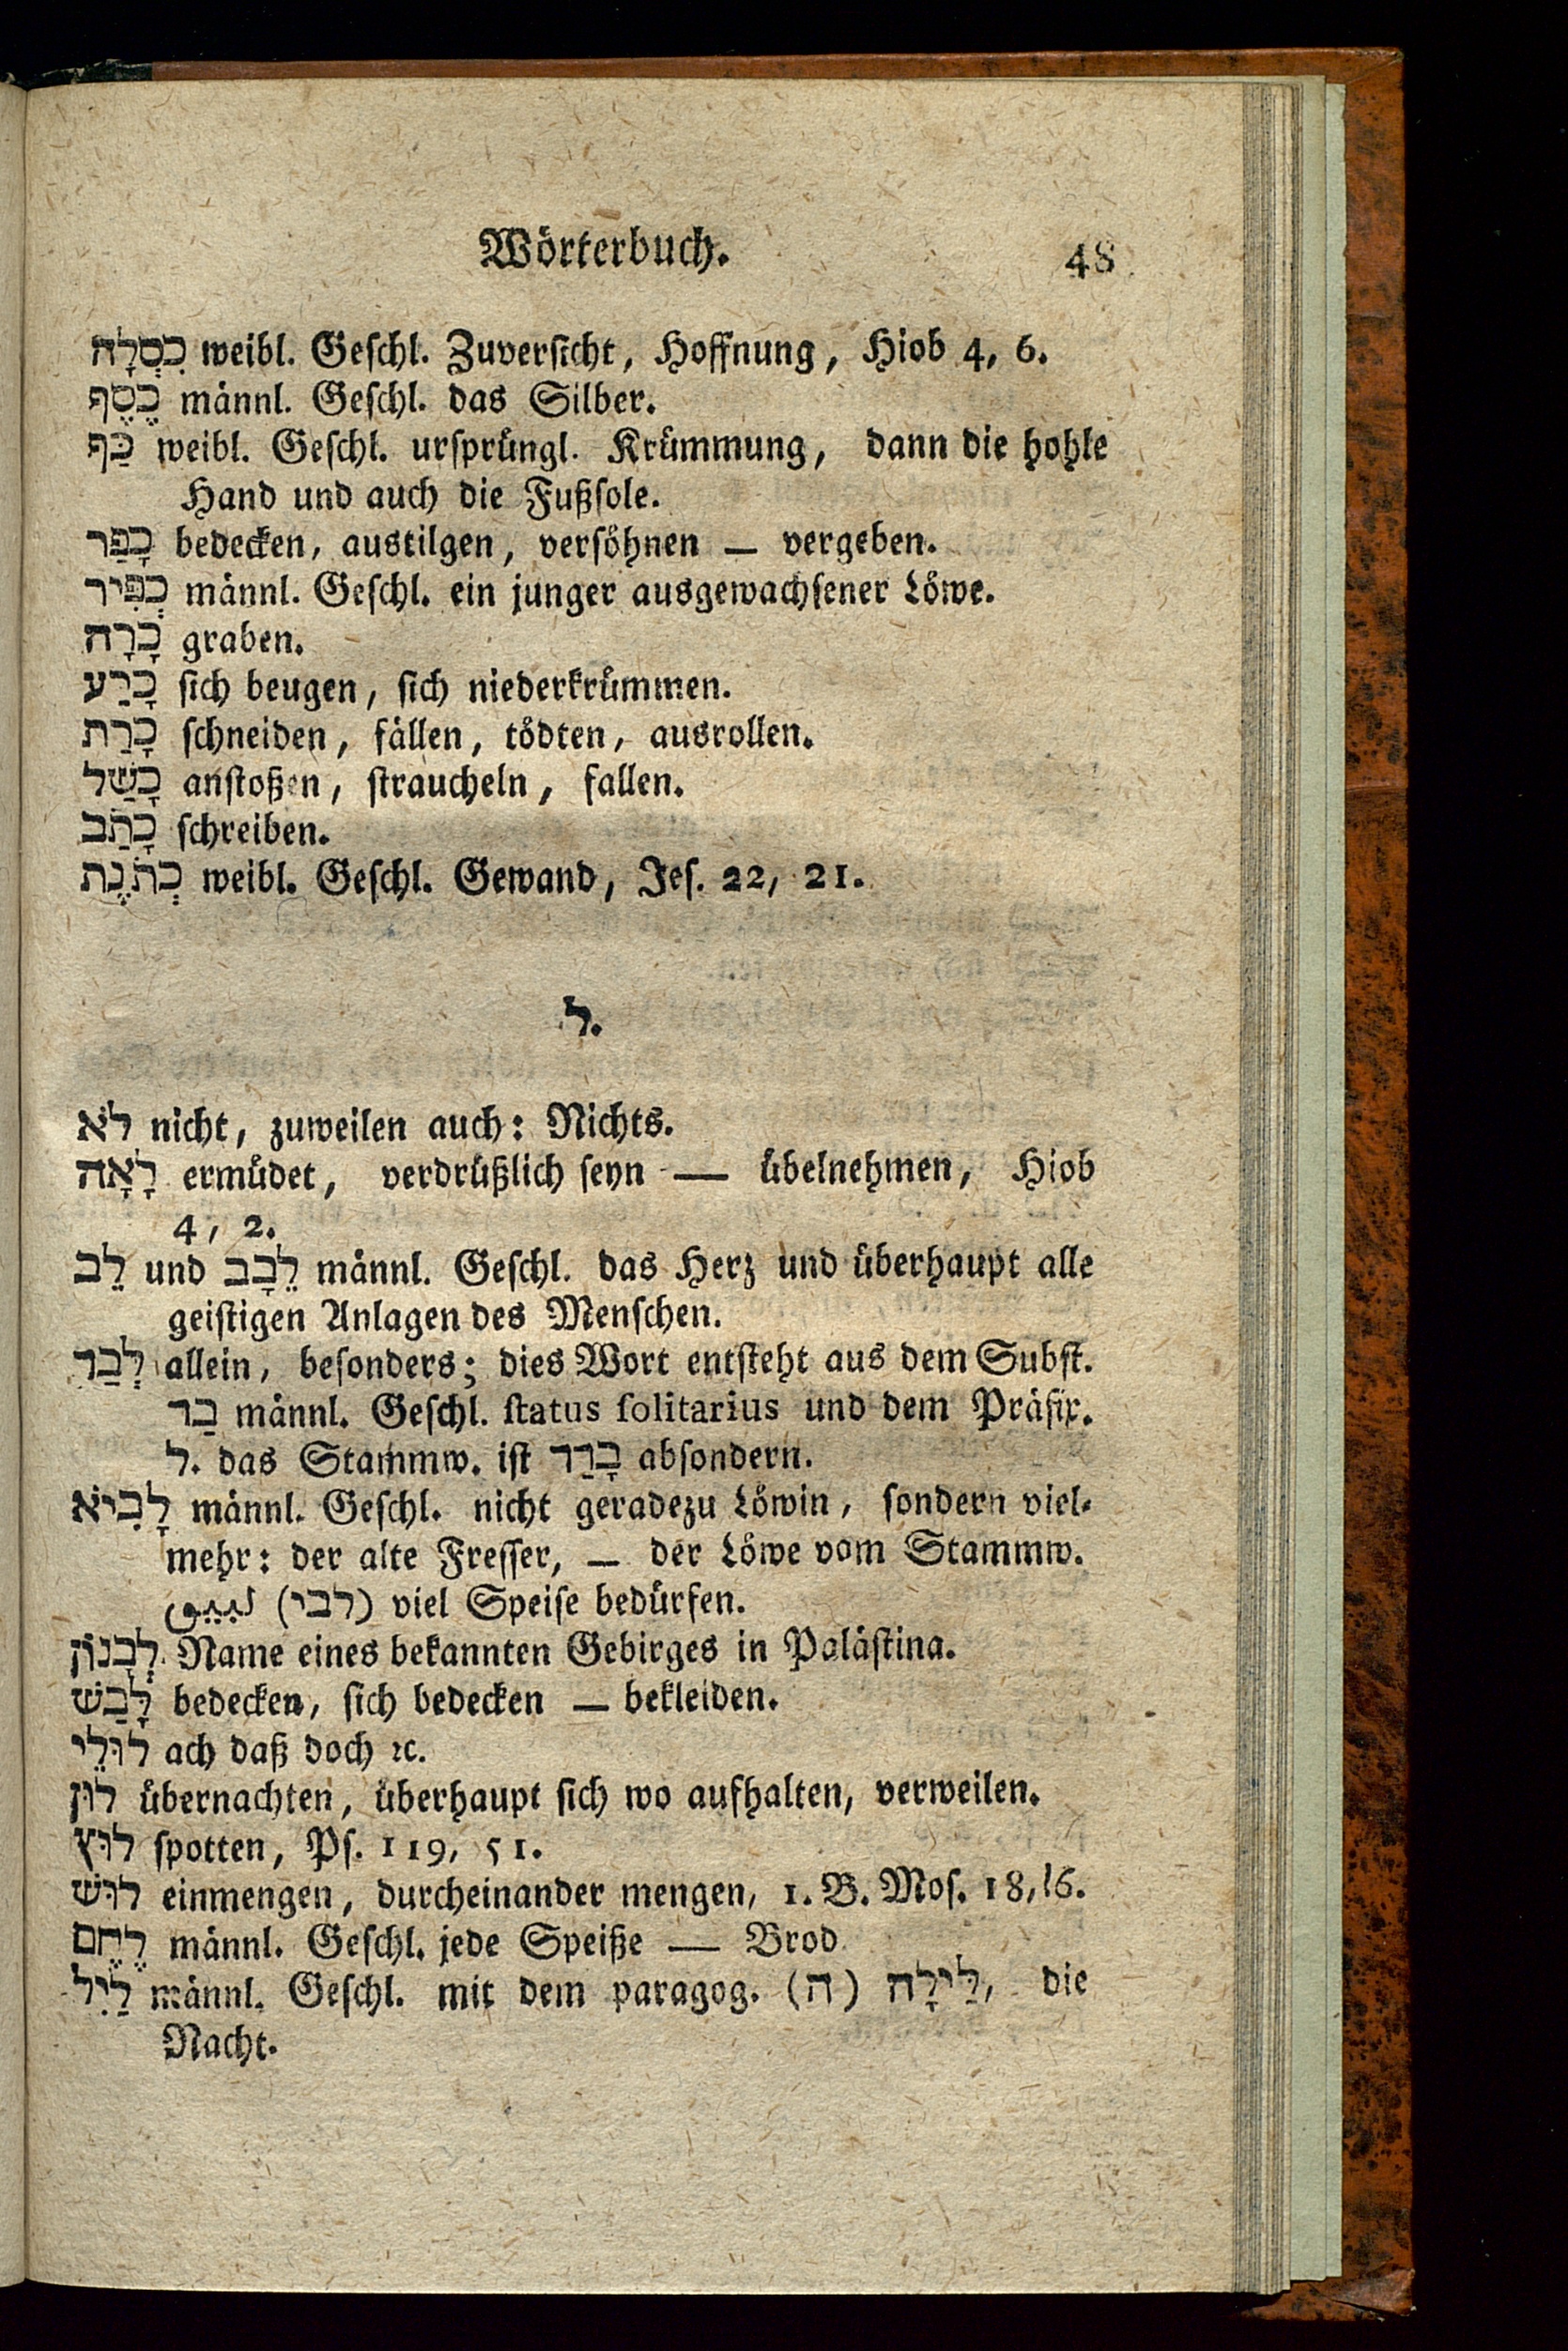 Wörterbuch. 48
כִּסְלָה weibl. Geſchl. Zuverſicht, Hoffnung, Hiob 4, 6.
כֶּסֶף männl. Geſchl. das Silber.
כַּף weibl. Geſchl. urſprüngl. Krümmung, dann die hohle
Hand und auch die Fußſole.
כָּפַר bedecken, austilgen, verſöhnen — vergeben.
כְּפִיר männl. Geſchl. ein junger ausgewachſener Löwe.
כָּרָה graben.
כָּרַע ſich beugen, ſich niederkrümmen.
כָּרַת ſchneiden, fällen, tödten, ausrollen.
כָּשַׁל anſtoßen, ſtraucheln, fallen.
כָּתַב ſchreiben.
כְּתֹנֶת weibl. Geſchl. Gewand, Jeſ. 22, 21.
ל.
לֹא nicht, zuweilen auch: Nichts.
לָאָה ermüdet, verdrüßlich ſeyn — übelnehmen, Hiob
4, 2.
לֵב und לֵבָב männl. Geſchl. das Herz und überhaupt alle
geiſtigen Anlagen des Menſchen.
לְבַד allein, beſonders; dies Wort entſteht aus dem Subſt.
בַּד männl. Geſchl. ſtatus ſolitarius und dem Präfix.
ל. das Stammw. iſt בָּדַד abſondern.
לָבִיא männl. Geſchl. nicht geradezu Löwin, ſondern viel-
mehr: der alte Freſſer, — der Löwe vom Stammw.
(לבי) viel Speiſe bedürfen.
לְבָנוֹן Name eines bekannten Gebirges in Paläſtina.
לָבַשׁ bedecken, ſich bedecken — bekleiden.
לוּלֵי ach daß doch ꝛc.
לוּן übernachten, überhaupt ſich wo aufhalten, verweilen.
לוּץ ſpotten, Pſ. 119, 51.
לוּשׁ einmengen, durcheinander mengen, 1. B. Moſ. 18, 16.
לֶחֶם männl. Geſchl. jede Speiße — Brod
לַיִל männl. Geſchl. mit dem paragog. (ה) לַיְלָה, die
Nacht.